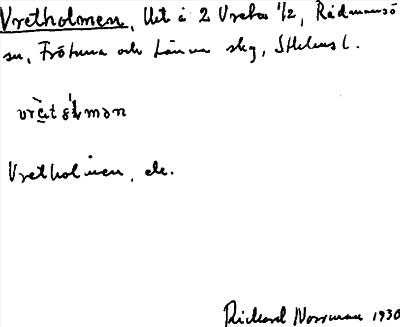 Vretholmen, Ut å 2 Vreta 1/2, Rådmansö
sn, Frötuna och Länna skg, Sthlms l.
Vretholmen, ele.
Richard Norrman 1930